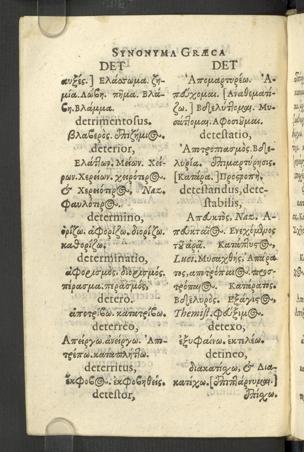 SYNONYMA GRÆCA
DET
αυξές.] Ελάττωμα. ζη-
μία. Λώβη. πῆμα. Βλά-
βη. Βλάμμα.
detrimentosus.
βλαβερὸς. ἐπιζήμιος.
deterior,
Ἐλάττων. Μείων. Χεί-
ρων. Χερείων. χειρότερος.
& Χερειότερος. Naz.
Φαυλότερος.
determino,
ὁρίζω. ἀφορίζω. διορίζω.
καθορίζω.
determinatio,
ἀφορισμὸς. διορισμὸς.
πέρασμα. περασμὸς.
detero.
ἀποτρίβω. κατατρίβω.
deterreo,
Ἀπείργω. ἀνείργω. Ἀπο-
τρέπω. καταπλήττω.
deterritus,
ἔκφοβος. ἐκφοβηθείς.
detestor,
DET
Ἀπομαρτυρέω. Ἀ-
πεύχομαι. [Αναθεματί-
ζω.] Βδελύττομαι. Μυ-
σάττομαι. Αφοσιοῦμαι.
detestatio,
Ἀποτροπιασμὸς. Βδε-
λυρία. ἐπιμαρτύρησις.
[Κατάρα.]
detestandus, dete-
stabilis,
Ἀπευκτὸς. Naz. Ἀ-
Κατάπτυστος,
Luci. Μυσαχθὴς. Ἀπάρα-
τος. Κατάρατος.
Βδελυρὸς. Εξάγιστος,
Themist.
detexo,
ἐξυφαίνω. ἐκτελέω.
detineo,
διακατέχω, & Δια-
κατίχω.
ἐπέχω.